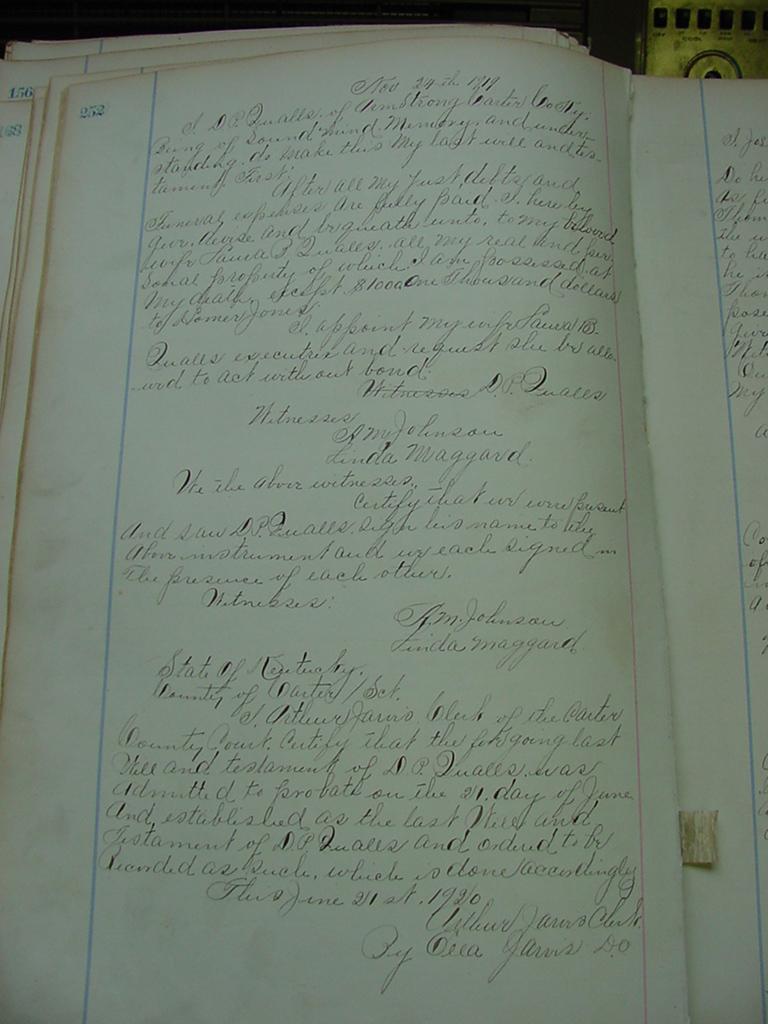 156
168
252
Nov 24-th 1919
I D.P. Qualls. of Armstrong Carter Co Ky.
Being of sound mind, Memory, and under-
standing, do make this my last will and tes-
tament, First:
After all my just debts, and
Funeral expenses are fully paid. I hereby
give, devise and bequeath unto, to my beloved
wife Laura B Qualls, all my real and per-
sonal property of which I am possessed at
My death, except $1000 One Thousand dollars
to Homer Jones.
I appoint my wife Laura B.
Qualls executrix and request she be allo-
wed to act without bond.
Witnesses D.P. Qualls
Witnesses
Johnson
Linda Maggard.
We the above witnesses,
Certify that we were present
And saw D.P. Qualls, sign his name to the
above instrument and we each signed in
The presence of each other.
Witnesses:
M. Johnson
Linda Maggard.
State Of Kentucky.
County of Carter / Sct.
I, Arthur Jarvis Clerk of the Carter
County Court, Certify that the foregoing last
Will and testament of D.P. Qualls, was
admitted to probate on the 21. day of June
And established as the last Will and
Testament of D.P. Qualls and ordered to be
Recorded as such, which is done accordingly
This June 21st, 1920
Arthur Jarvis Clerk
By Jarvis D.C